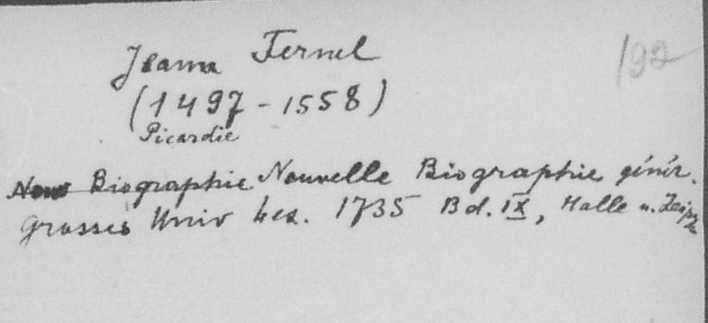 Jeanne Fernel
192
(1497-1558)
Picardie
Biographie Nouvelle Biographie génér.
Grosses Univ Lex. 1735 Bd. IX, Halle u. Leipz